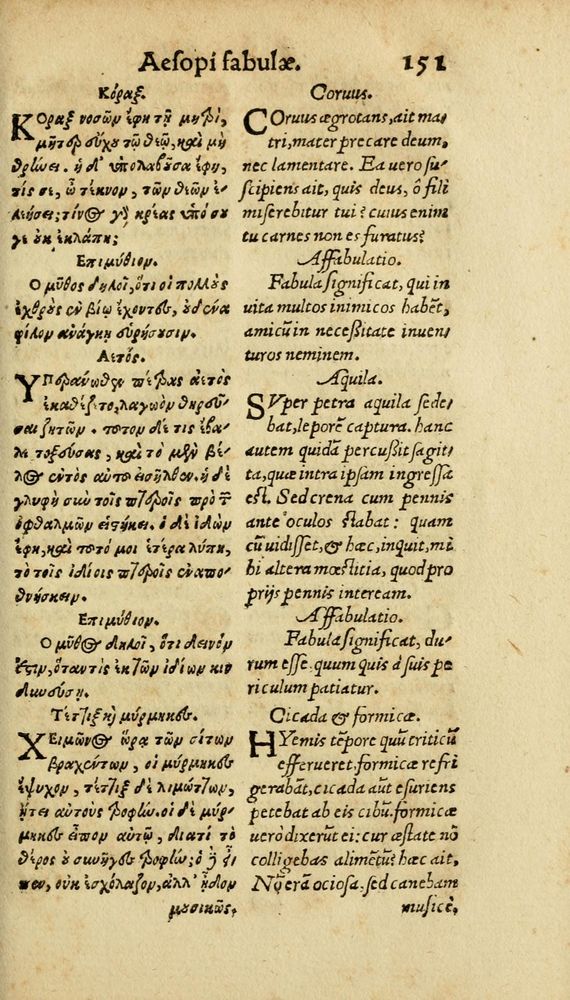 Aesopi fabulæ. 151
Κόραξ.
ΚΟραξ νοσῶν ἔφη τῇ μητρὶ,
μῆτερ εὔχου τῷ θεῷ, καὶ μὴ
θρήνει. ἡ δ' ὑπολαβοῦσα ἔφη,
τίς σε, ὦ τέκνον, τῶν θεῶν ἐ-
λεήσει; τίνος γὰρ κρέας ὑπό σου
γε οὐκ ἐκλάπη;
Επιμύθιον.
Ο μῦθος δηλοῖ, ὅτι οἱ πολλοὺς
ἐχθροὺς ἐν βίῳ ἔχοντες, οὐδένα
φίλον ἀνάγκῃ εὑρήσουσιν.
Αετός.
ΥΠεράνωθεν πέτρας ἀετὸς
ἐκαθέζετο, λαγωὸν θηρεῦ-
σαι ζητῶν. τοῦτον δέ τις ἔβα-
λε τοξεύσας, καὶ τὸ μὲν βέ-
λος ἐντὸς αὐτοῦ εἰσῆλθεν. ἡ δὲ
γλυφὴ σὺν τοῖς πτεροῖς πρὸ τῶν
ὀφθαλμῶν εἱστήκει. ὁ δὲ ἰδὼν
ἔφη, καὶ τοῦτό μοι ἑτέρα λύπη,
τὸ τοῖς ἰδίοις πτεροῖς ἐναπο-
θνήσκειν.
Επιμύθιον.
Ο μῦθος δηλοῖ, ὅτι δεινόν
ἐστιν, ὅταν τις ἐκ τῶν ἰδίων κιν
δυνεύσῃ.
Τέττιξ καὶ μύρμηκες.
ΧΕιμῶνος ὥρᾳ τῶν σίτων
βραχέντων, οἱ μύρμηκες
ἔψυχον, τέττιξ δὲ λιμώττων,
ᾔτει αὐτοὺς τροφήν. οἱ δὲ μύρ-
μηκες εἶπον αὐτῷ, διατί τὸ
θέρος οὐ συνῆγες τροφήν; ὁ δὲ εἶ-
πεν, οὐκ ἐσχόλαζον, ἀλλ' ᾖδον
μουσικῶς.
Coruus.
COruus ægrotans, ait ma-
tri, mater precare deum,
nec lamentare. Ea uero su-
scipiens ait, quis deus, ô fili
miserebitur tui? cuius enim
tu carnes non es furatus?
Affabulatio.
Fabula significat, qui in
uita multos inimicos habẽt,
amicũ in necessitate inuen-
turos neminem.
Aquila.
SVper petra aquila sede-
bat, leporẽ captura. hanc
autem quidã percussit sagit-
ta, quæ intra ipsam ingressa
est. Sed crena cum pennis
ante oculos stabat: quam
cũ uidisset, & hæc, inquit, mi-
hi altera mœstitia, quod pro
prijs pennis inteream.
Affabulatio.
Fabula significat, du-
rum esse, quum quis à suis pe
riculum patiatur.
Cicada & formicæ.
HYemis tẽpore quũ triticũ
efferueret, formicæ refri
gerabãt, cicada aũt esuriens
petebat ab eis cibũ. formicæ
uerò dixerũt ei: cur æstate nõ
colligebas alimẽtũ? hæc ait,
Nõ erã ociosa, sed canebam
musicè,